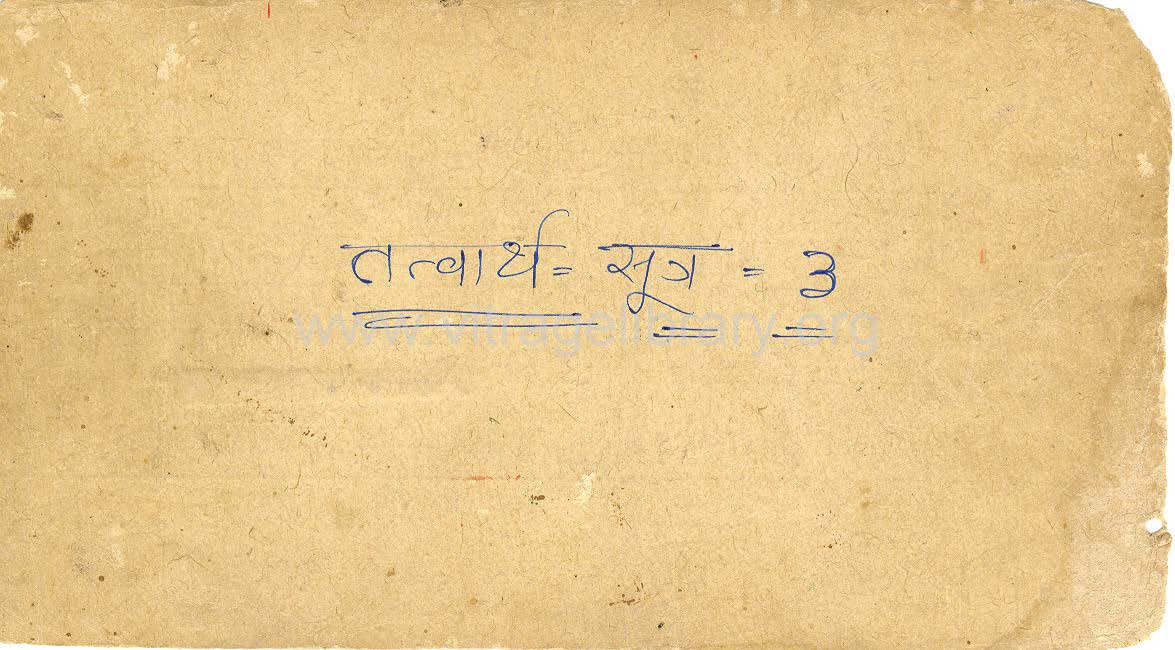 तत्वार्थ= सूत्र = ३
www.vitragelibrary.org